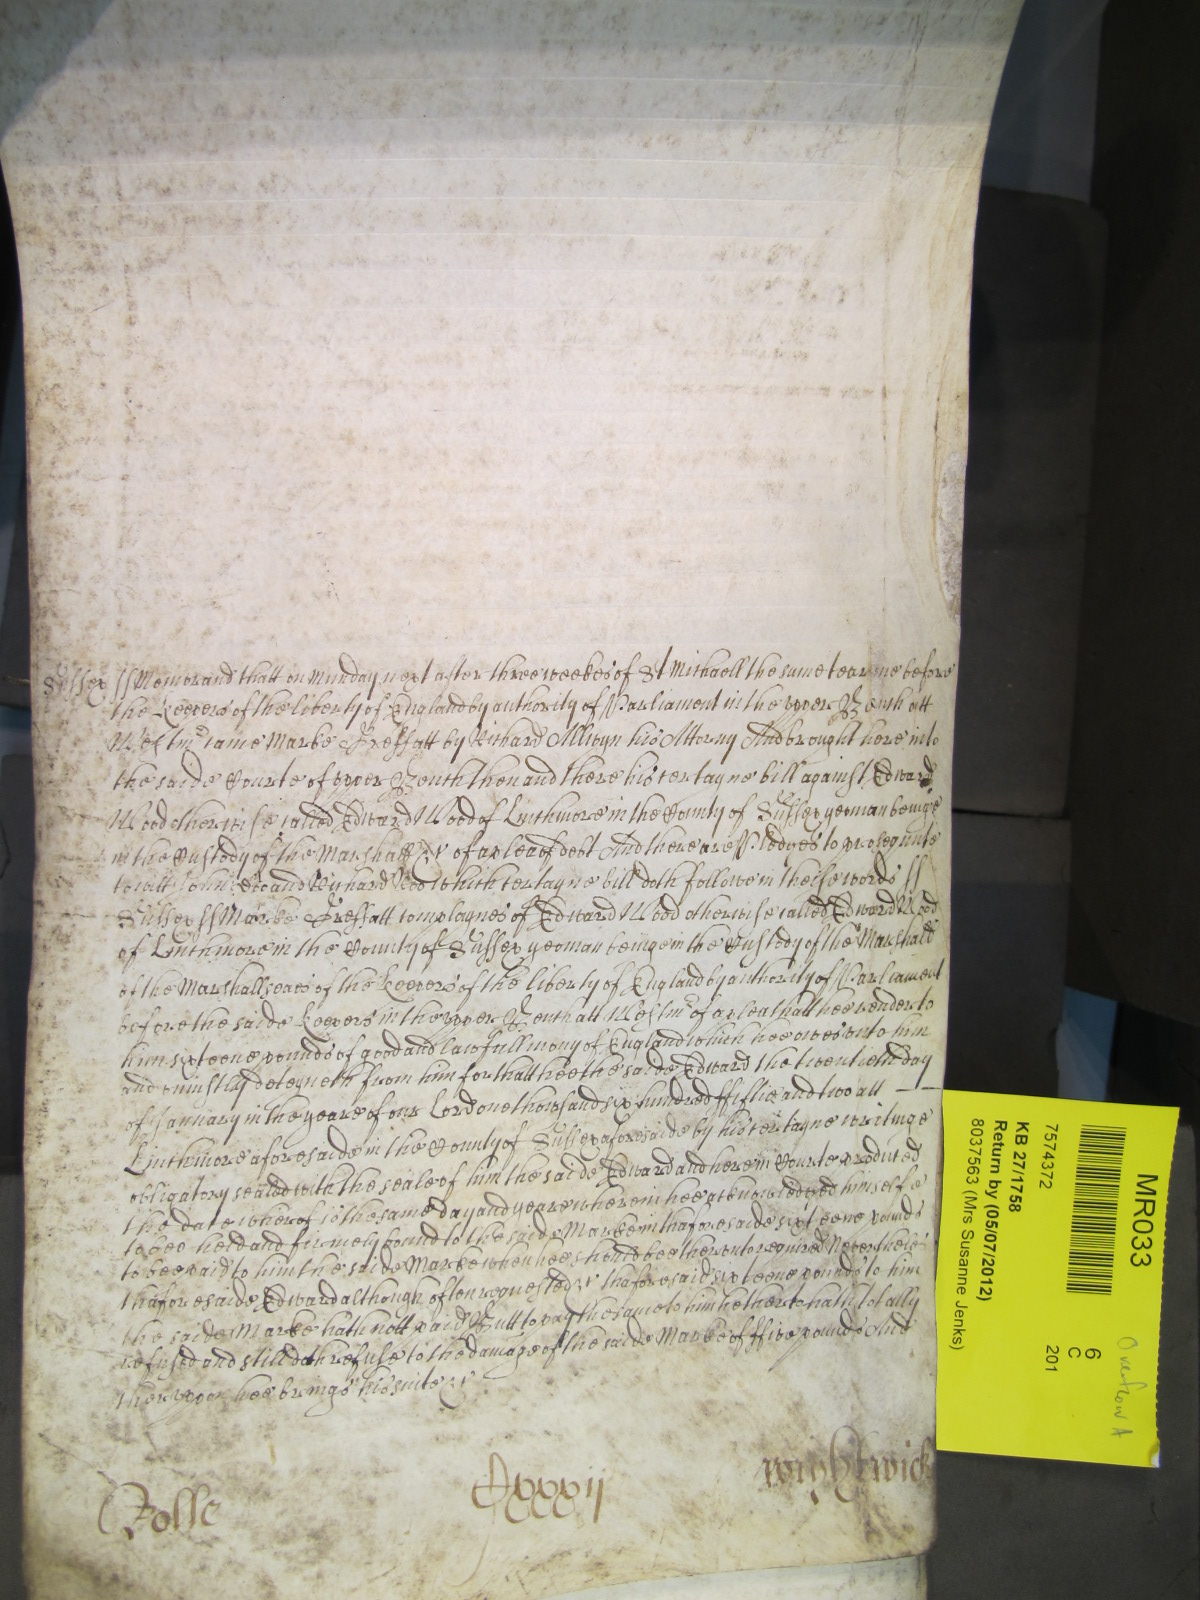 Sussex ss Memorand thatt on Munday next after three weekes of St Michaell the same tearme before
the keepers of the liberty of England by authority of Parliament in the upper Bench att
Westmr came Marke Gressatt by Richard Allwyn his Attorny And brought here into
the saide Courte of upper Bench then and there his certayne bill against Edward
Wood otherwise called Edward Wood of Linchmore in the County of Sussex yeoman beinge
in the Custody of the Marshall &c of a plea of debt And there are Pledges to prosequute
to witt John Doo and Richard Roo which certayne bill doth followe in theise words ss
Sussex ss Marke Gressatt complaynes of Edward Wood otherwise called Edward Wood
of Linchmore in the County of Sussex yeoman beinge in the Custody of the Marshall
of the Marshallseas of the keepers of the liberty of England by authority of Parliament
before the saide keepers in the upper Bench att Westmr of a plea thatt hee render to
him sixteene pounds of good and lawfull mony of England which hee owes unto him
and uniustly deteyneth from him for thatt hee the saide Edward the twentieth day
of January in the yeare of our Lord one thowsand six hundred fiftie and two att
Linchmore aforesaide in the County of Sussex aforesaide by his certayne writinge
obligatory sealed with the seale of him the saide Edward and here in Courte produced
the date wherof is the same day and yeare wherein hee acknowledged himselfe
to bee held and firmely bound to the saide Marke in thaforesaide sixteene pounds
to bee paid to him the saide Marke when hee should bee therunto required Neverthels
thaforesaide Edward although often requested &c thaforesaid sixteene pounds to him
the saide Marke hath nott paid Butt to pay the same to him hetherto hath totally
refused and still doth refuse to the damage of the saide Marke of ffive pounds And
therupon hee brings his suite &c
Rolle
Cxxxij
wightwick
MR033
7574372
6
C
201
KB 27/1758
Return by (05/07/2012)
8037563 (Mrs Susanne Jenks)